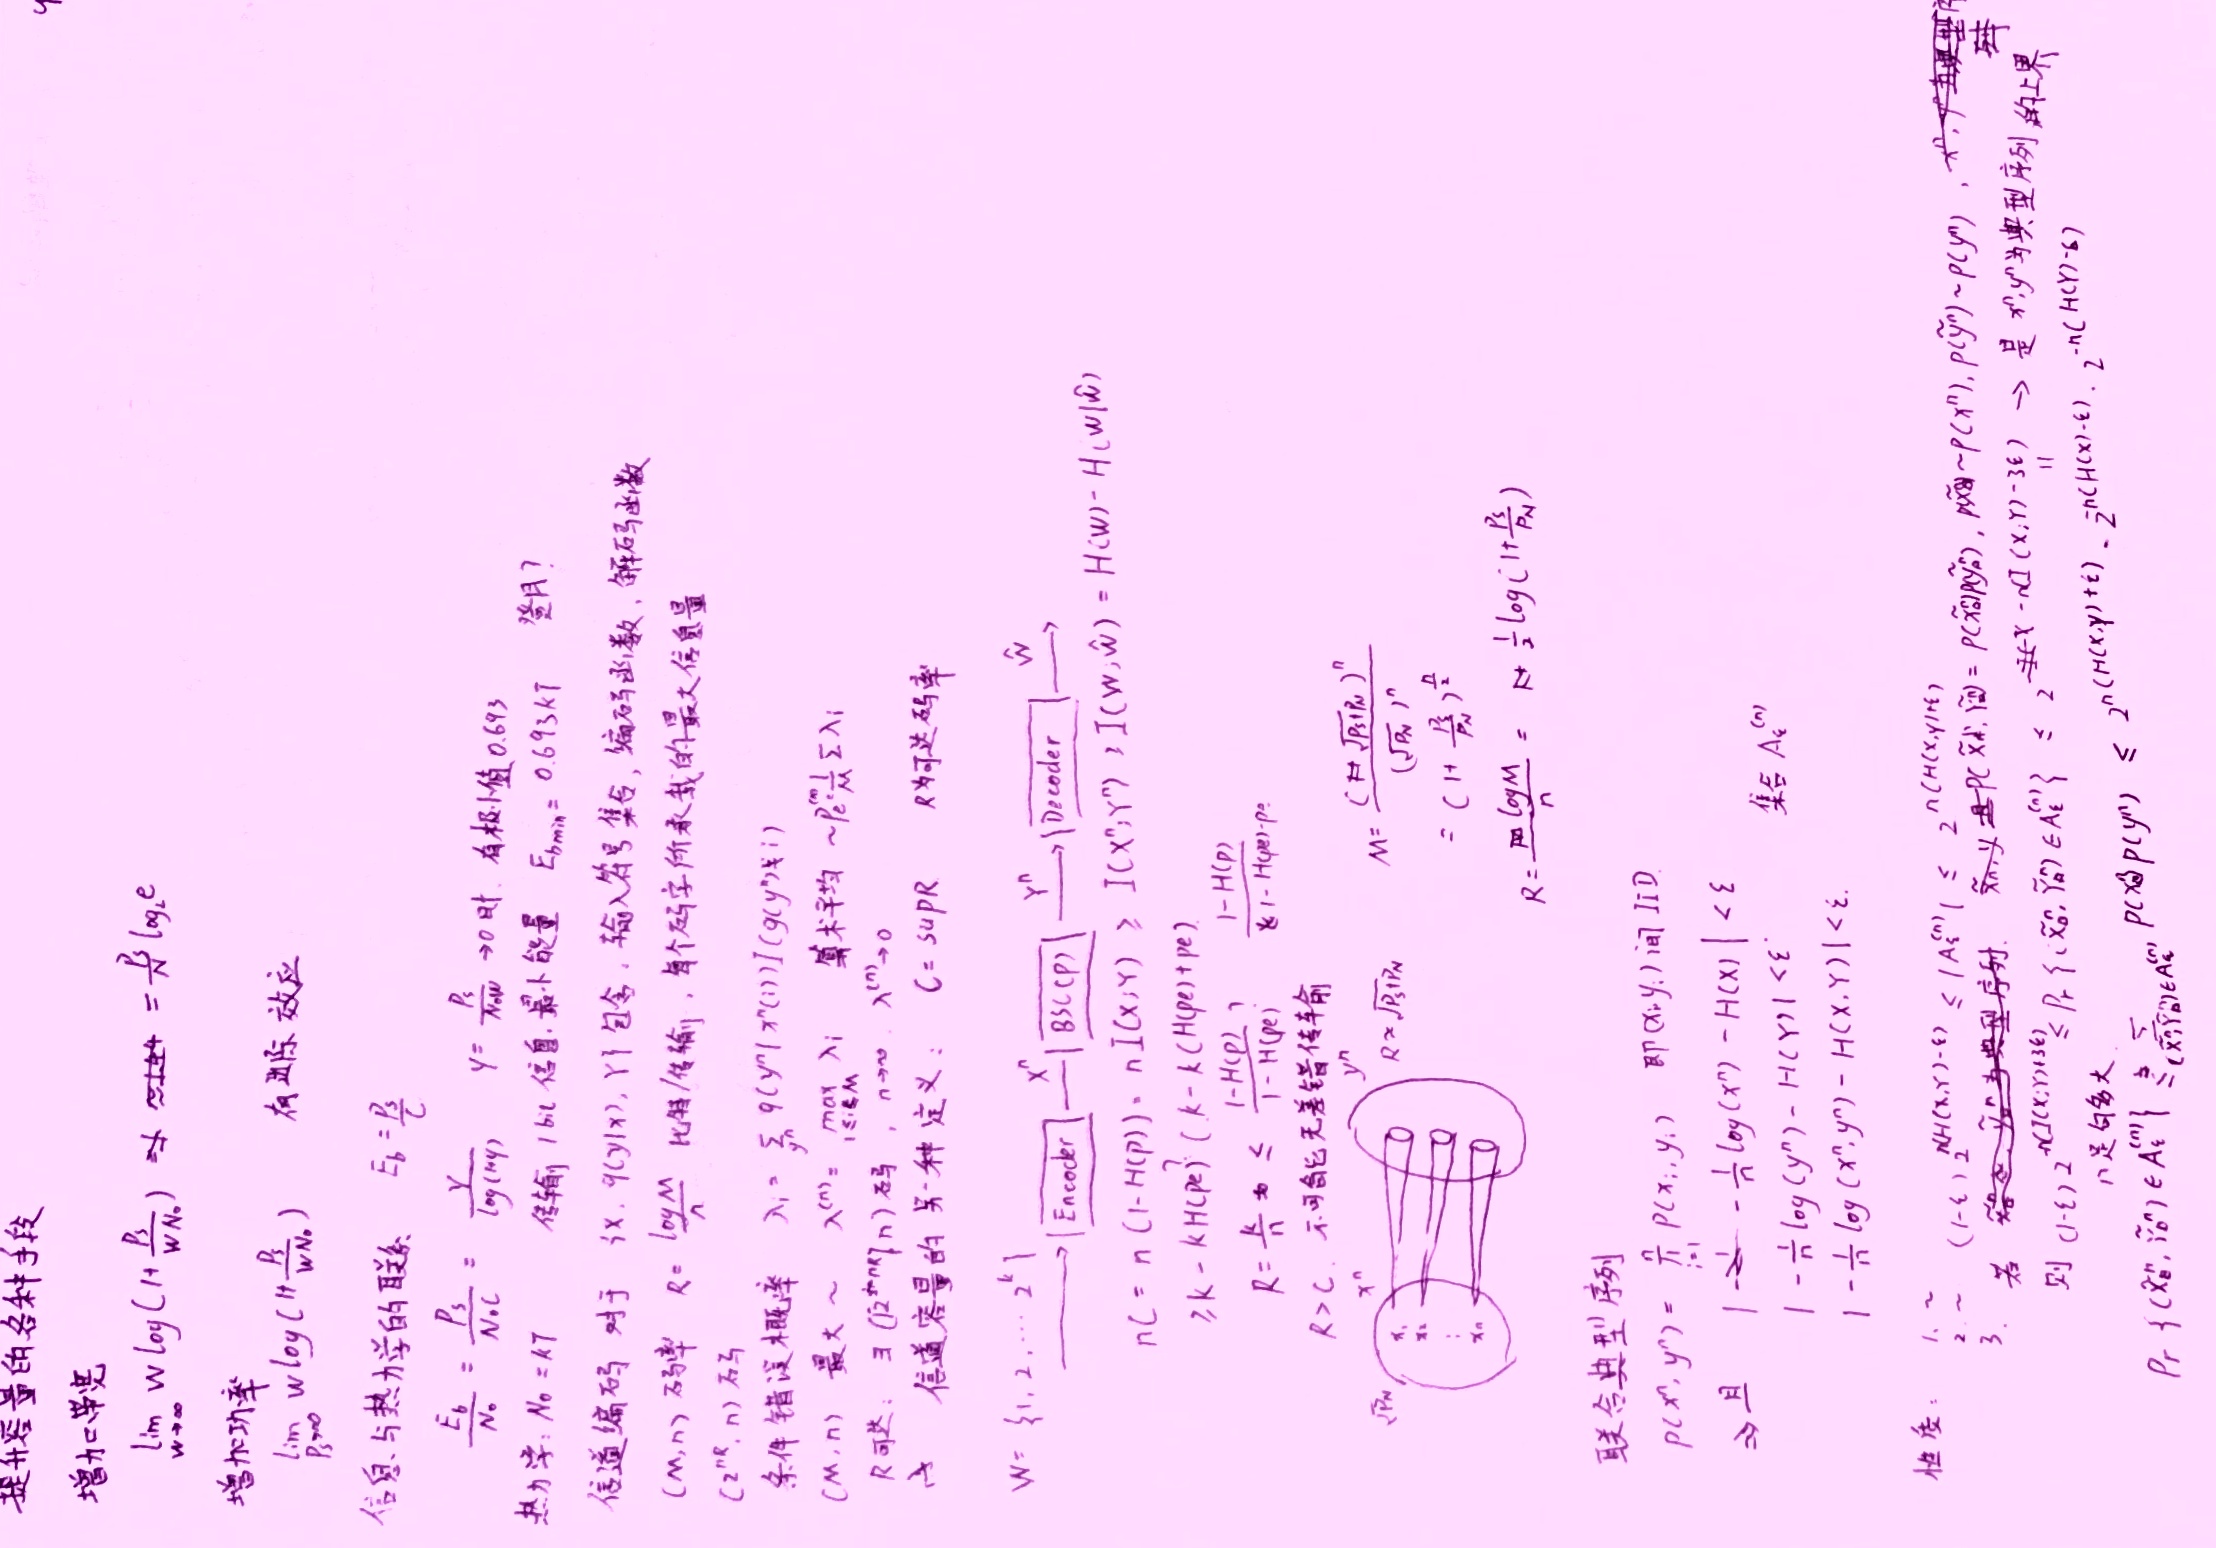 提升容量的各种手段
增加带宽
lim W→∞ W log(1+ Ps/WN₀) = Ps/N log₂e
增加功率
lim Ps→∞ W log(1+ Ps/WN₀) 有边际效应
信息与热力学的联系 Eb = Ps/C
Eb/N₀ = Ps/N₀C = γ/log(1+γ) γ= Ps/N₀W →0时. 有极小值0.693
热力学: N₀ = kT 传输1bit信息.最小能量 Ebmin = 0.693kT 登月?
信道编码 对于 {X, q(y|x), Y} 包含, 输入符号集合, 编码函数, 解码函数
(M,n) 码率 R= logM/n 比特/传输, 每个码字所承载的最大信息量
(2^nR, n) 码
条件错误概率 λi = Σ_yⁿ q(yⁿ|xⁿ(i)) I(g(yⁿ)≠i)
(M,n) 最大~ λ^(n) = max 1≤i≤M λi 算术平均 ~Pe^(n) = 1/M Σλi
R可达: ∃ (⌈2^nR⌉, n) 码, n→∞. λ^(n)→0
信道容量的另一种定义: C= supR R为可达码率
W= {1, 2, ⋯ 2^k}
Encoder Xⁿ BSC(p) Yⁿ Decoder Ŵ
nC = n(1-H(p)) = nI(X;Y) ≥ I(Xⁿ;Yⁿ) ≥ I(W;Ŵ) = H(W)- H(W|Ŵ)
≥ k - kH(pe)? (k - k(H(pe)+pe)
R= k/n ≤ 1-H(p)/1-H(pe) ? 1-H(p)/1-H(pe)-pe
R>C. 不可能无差错传输
√PN xⁿ yⁿ R≈√Ps+PN M= (√Ps+PN)ⁿ/(√PN)ⁿ
x₁
x₂
⋮
xn
= (1+ Ps/PN)^n/2
R= logM/n = 1/2 log(1+ Ps/PN)
联合典型序列
P(xⁿ, yⁿ) = ∏ i=1 n P(xi, yi) 即(xi,yi)间IID
⇒且 | - 1/n log(xⁿ) - H(X) | < ε
| - 1/n log(yⁿ) - H(Y)| <ε 集合 Aε^(n)
| - 1/n log(xⁿ,yⁿ) - H(X,Y)| <ε.
性质: 1. ~
2. ~ (1-ε) 2^n(H(X,Y)-ε) ≤ |Aε^(n)| ≤ 2^n(H(X,Y)+ε)
3. 若 P(x̃ⁿ, ỹⁿ) = P(x̃ⁿ)P(ỹⁿ), p(x̃ⁿ) ~ p(xⁿ), p(ỹⁿ) ~ p(yⁿ),
则 (1-ε) 2^-n(I(X;Y)+3ε) ≤ Pr{(x̃ⁿ, Ỹⁿ) ∈ Aε^(n)} ≤ 2^-n(I(X;Y)-3ε) → 是xⁿ,yⁿ为典型序列的上界
n足够大
Pr {(x̃ⁿ, Ỹⁿ) ∈ Aε^(n)} ≤ Σ (x̃ⁿ,Ỹⁿ)∈Aε^(n) P(xⁿ)P(yⁿ) ≤ 2^n(H(X,Y)+ε) · 2^-n(H(X)-ε) · 2^-n(H(Y)-ε)